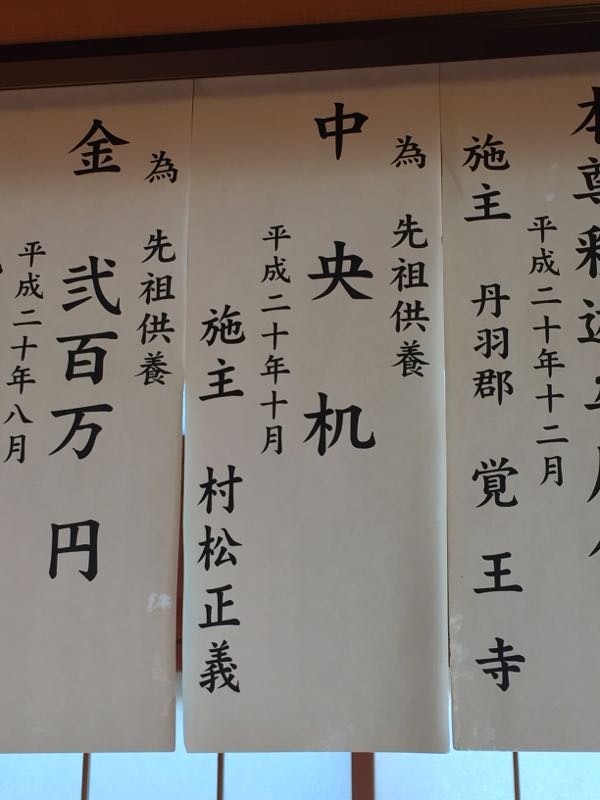 本尊釈迦
平成二十年十二月
施主 丹羽郡 覚王寺
為 先祖供養
中央机
平成二十年十月
施主 村松正義
為 先祖供養
金 弐百万円
平成二十年八月